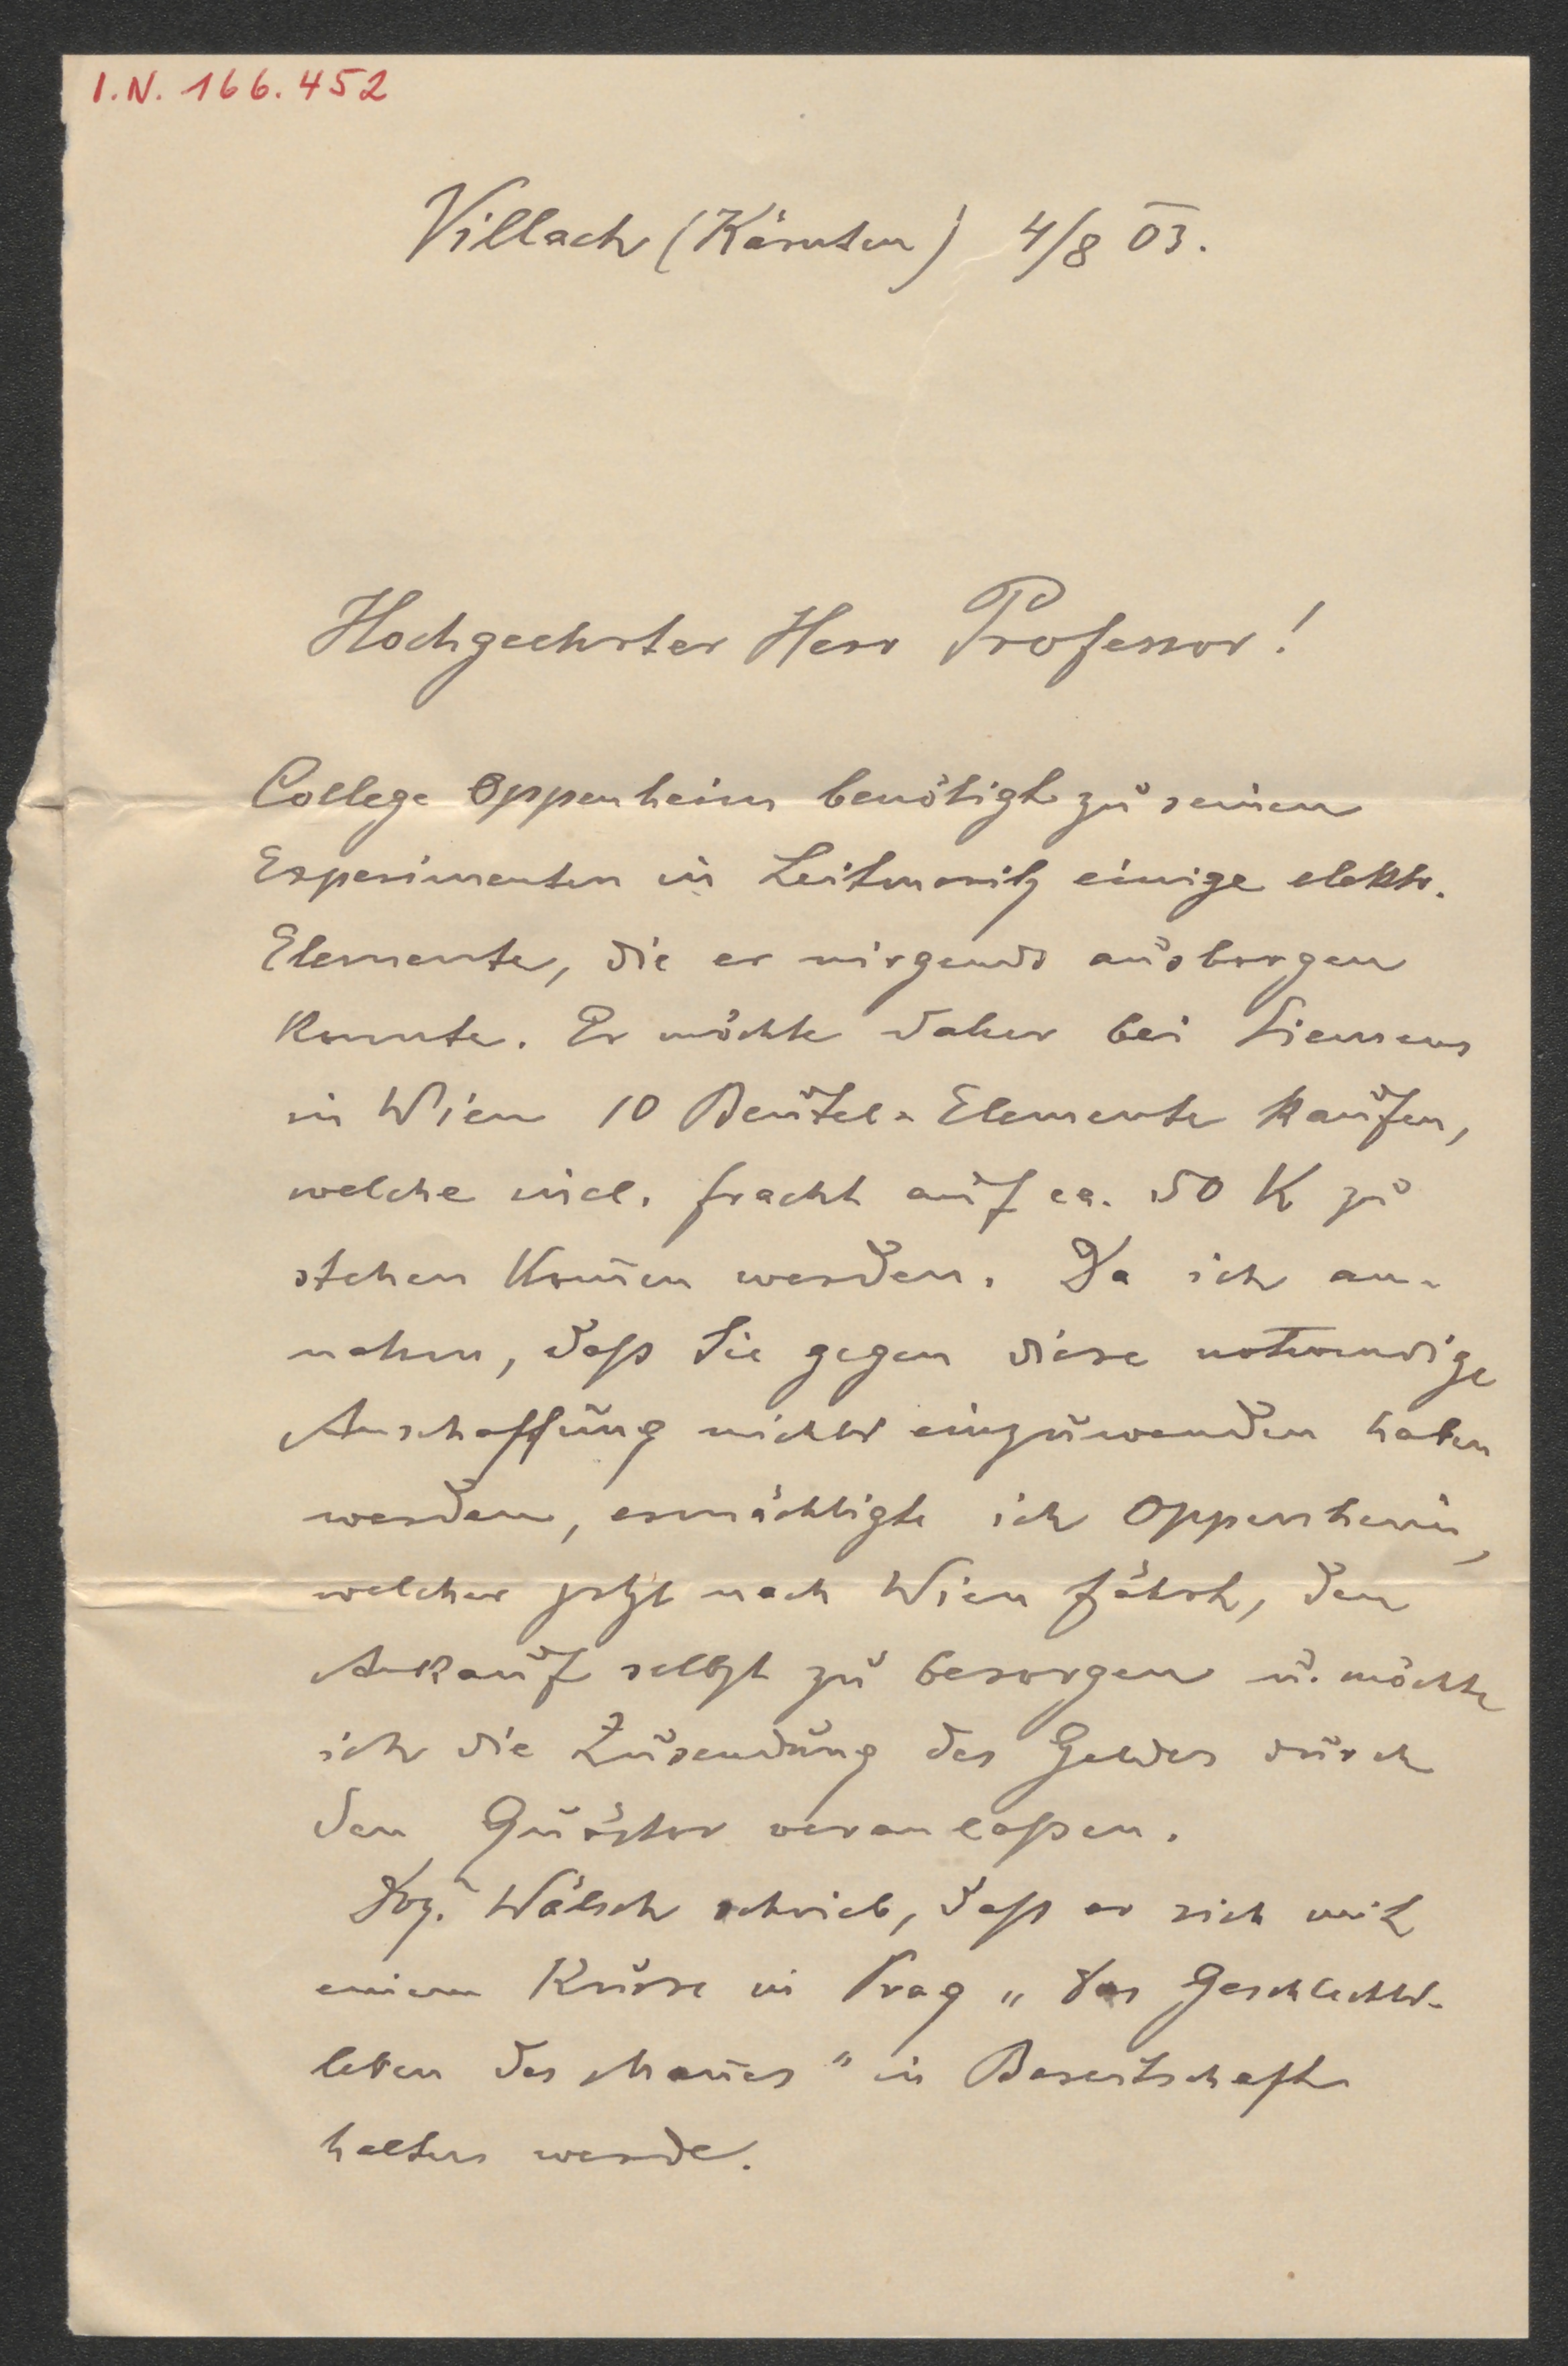 I.N. 166.452
Villach (Kärnten) 4/8 03.
Hochgeehrter Herr Professor!
College Oppenheim benötigt zu seinen
Experimenten in Leitmeritz einige elektr.
Elemente, die er nirgends ausborgen
konnte. Er möchte daher bei Siemens
in Wien 10 Beutel-Elemente kaufen,
welche incl. Fracht auf ca. 50 K zu
stehen kom̄en werden. Da ich an-
nahm, daß Sie gegen diese notwendige
Anschaffung nichts einzuwenden haben
werden, ermächtigte ich Oppenheim,
welcher jetzt nach Wien fährt, den
Ankauf selbst zu besorgen u. möchte
ich die Zusendung des Geldes durch
den Quästor veranlaßen.
Doz. Wälsch schrieb, daß er sich mit
einem Kurse in Prag „Das Geschlechts-
leben des Man̄es" in Bereitschaft
halten werde.